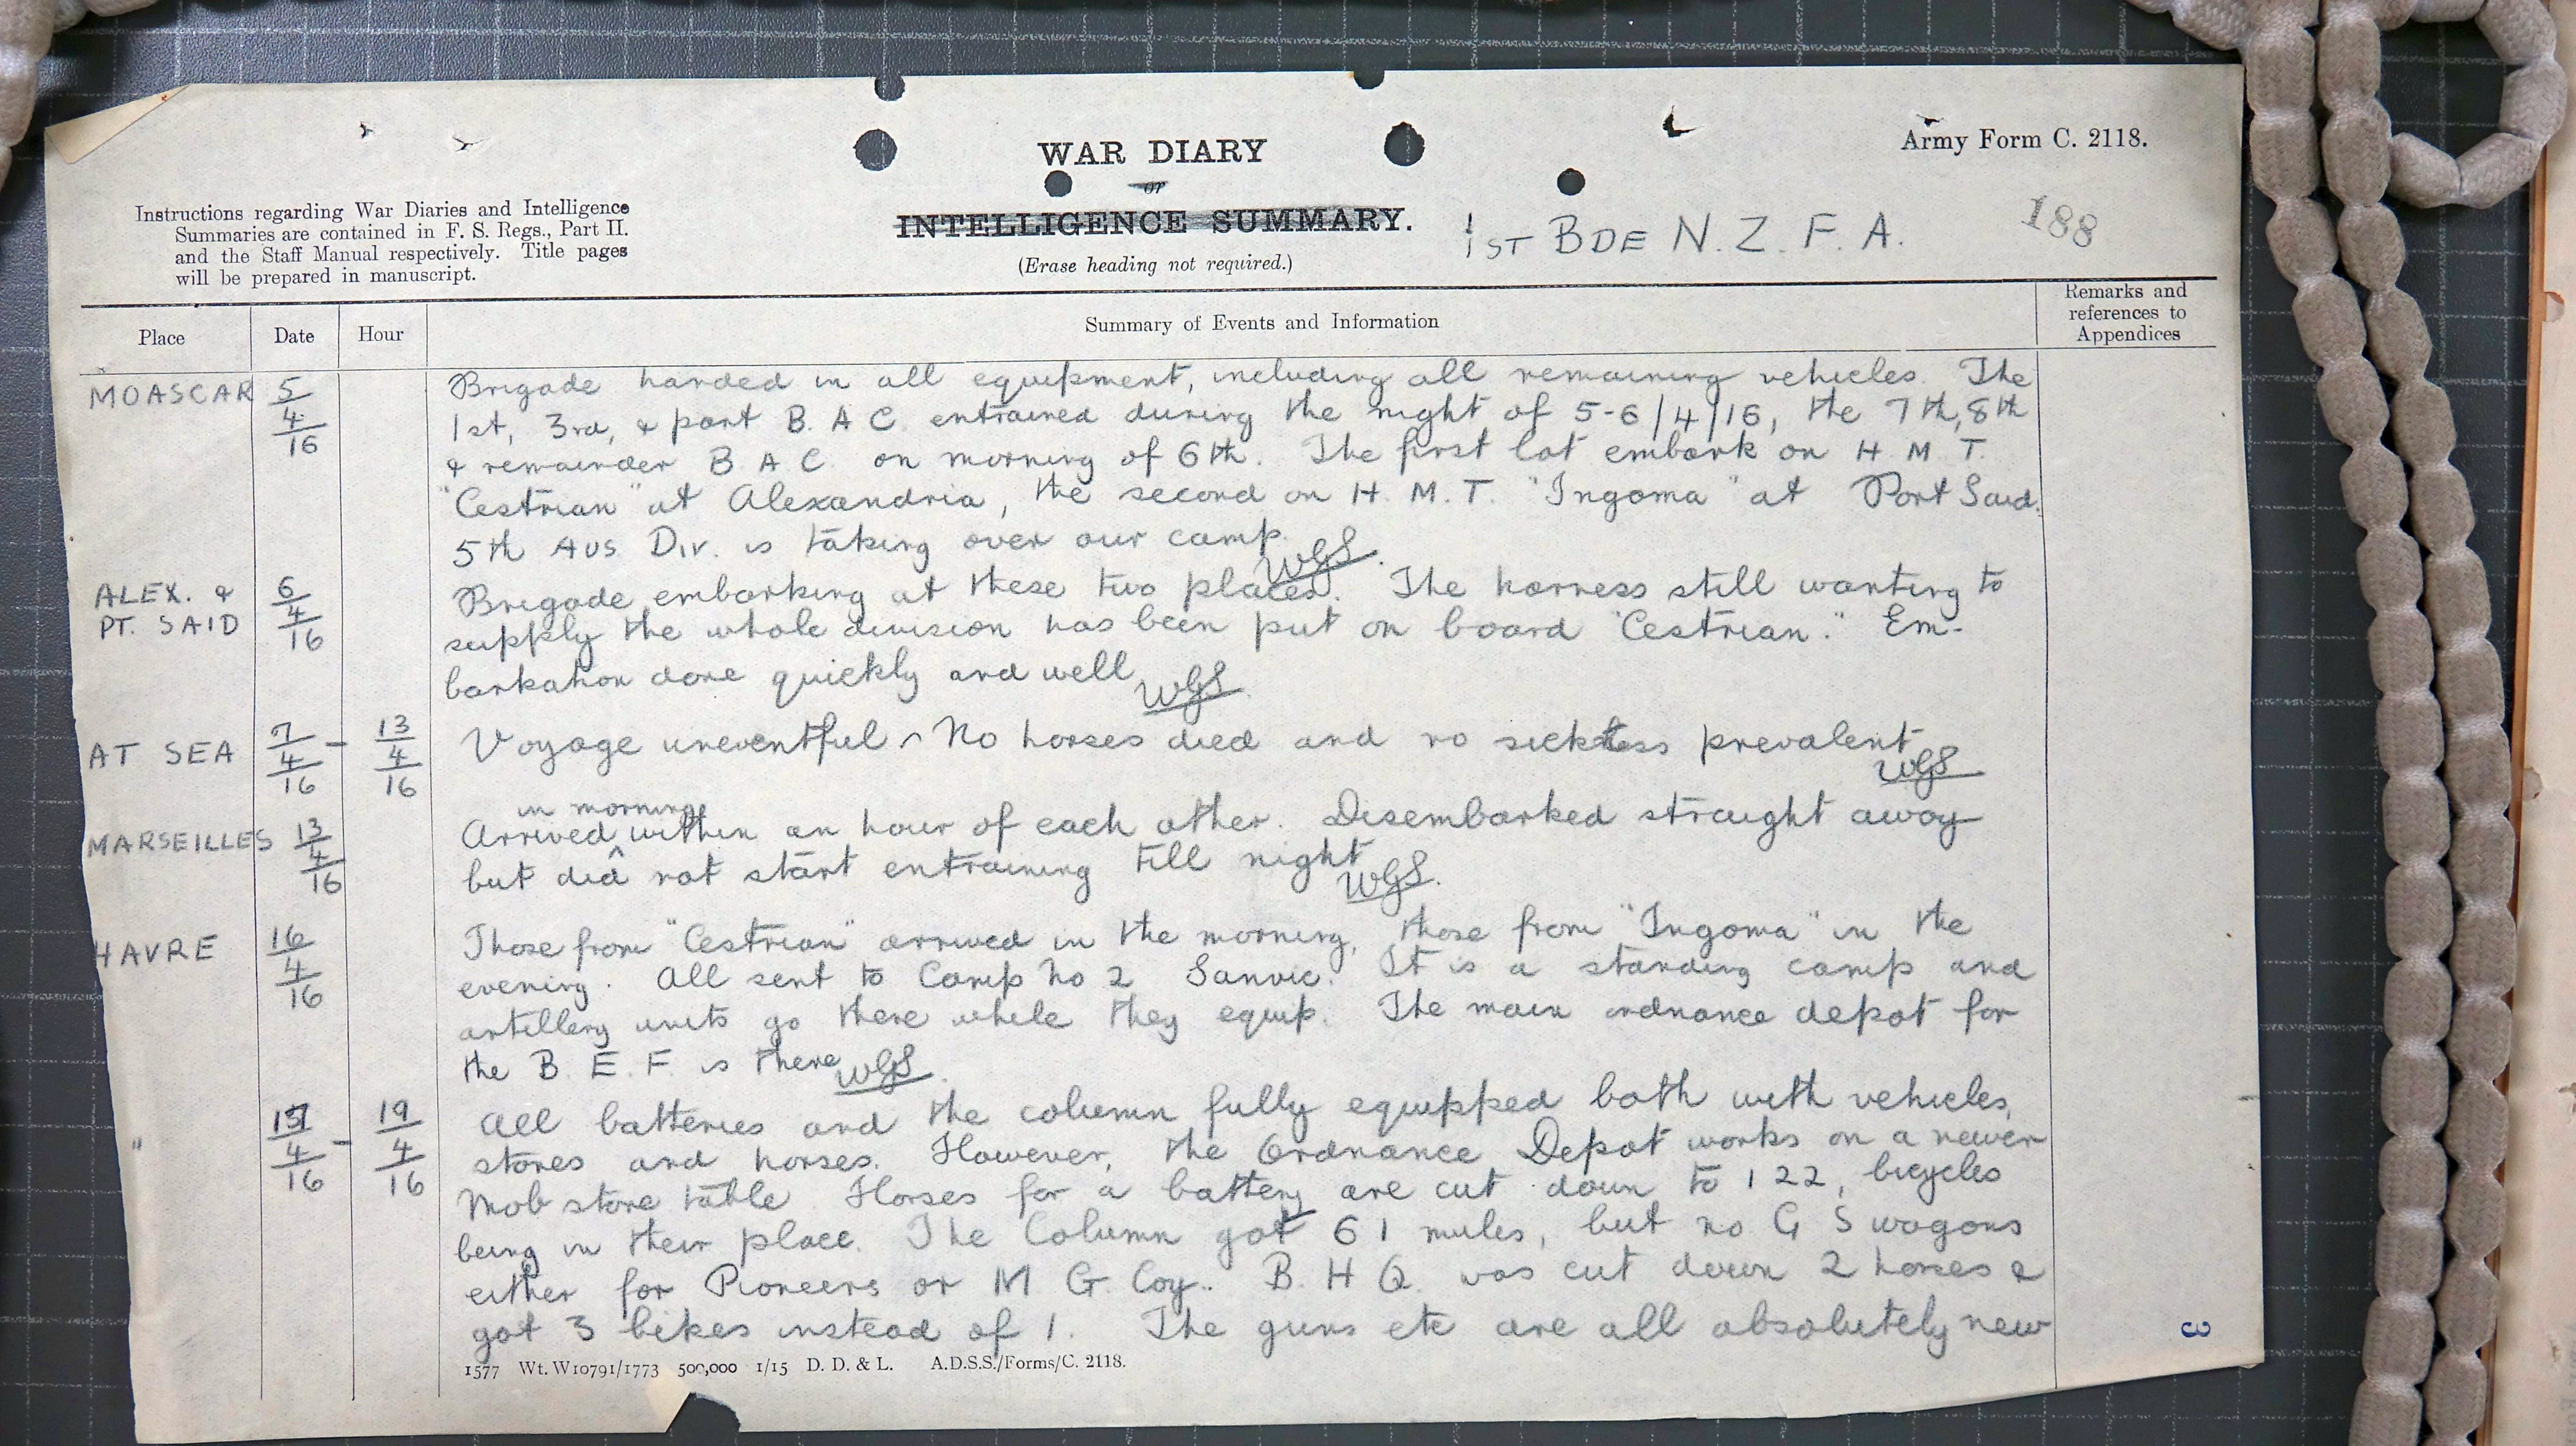 Army Form C. 2118.
WAR DIARY
or
INTELLIGENCE SUMMARY.
(Erase heading not required.)
Instructions regarding War Diaries and Intelligence
Summaries are contained in F. S. Regs., Part II.
and the Staff Manual respectively. Title pages
will be prepared in manuscript.
1ST BDE N. Z. F. A.
188
Place Date Hour Summary of Events and Information
Remarks and
references to
Appendices
MOASCAR 5/4/16 Brigade handed in all equipment, including all remaining vehicles. The
1st, 3rd, & part B. A C. entrained during the night of 5-6/4/16, the 7th, 8th
& remainder B A C. on morning of 6th. The first lot embark on H. M. T.
"Cestrian" at Alexandria, the second on H. M. T. "Ingoma" at Port Said.
5th Aus Div. is taking over our camp. WGS.
ALEX. & PT. SAID 6/4/16 Brigade embarking at these two places. The harness still wanting to
supply the whole division has been put on board "Cestrian." Em-
barkation done quickly and well. WGS.
AT SEA 7/4/16 - 13/4/16 Voyage uneventful. No horses died and no sickness prevalent
WGS
in morning
MARSEILLES 13/4/16 Arrived within an hour of each other. Disembarked straight away
but did not start entraining till night WGS.
HAVRE 16/4/16 Those from "Cestrian" arrived in the morning, those from "Ingoma" in the
evening. All sent to Camp No 2 Sanvic. It is a standing camp and
artillery units go there while they equip. The main ordnance depot for
the B. E. F. is there WGS.
" /4/16 - 19/4/16 All batteries and the column fully equipped both with vehicles,
stores and horses. However, the Ordnance Depot works on a newer
Mob store table. Horses for a battery are cut down to 122, bicycles
being in their place. The Column got 61 mules, but no G S wagons
either for Pioneers or M G. Coy. B. H Q. was cut down 2 horses &
got 3 bikes instead of 1. The guns etc are all absolutely new
1577 Wt. W10791/1773 500,000 1/15 D. D. & L. A.D.S.S./Forms/C. 2118.
3